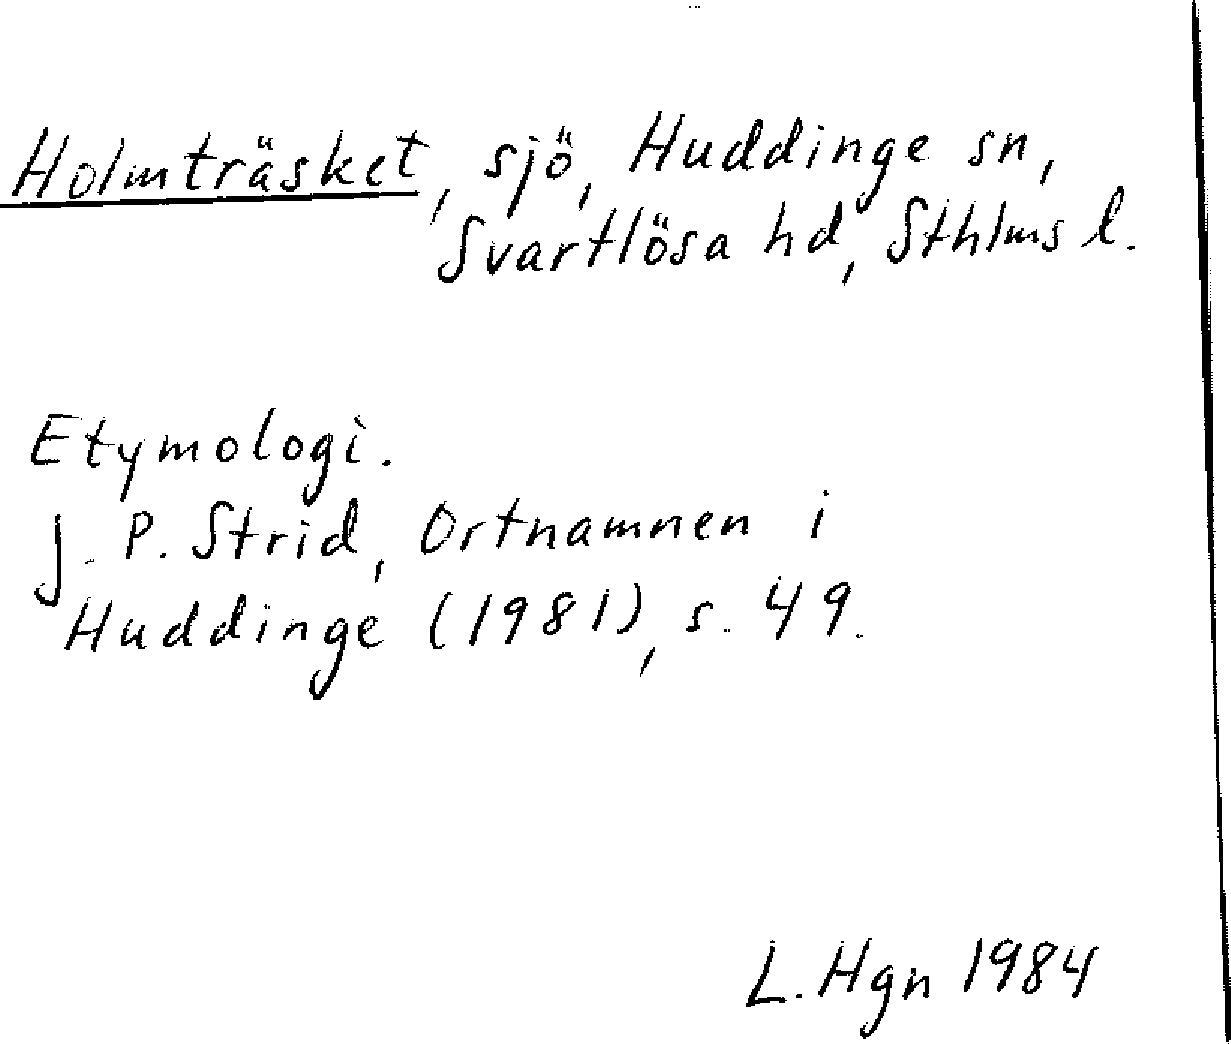 Holmträsket, sjö, Huddinge sn,
Svartlösa hd, Sthlms l.
Etymologi.
J. P. Strid, Ortnamnen i
Huddinge (1981), s. 49.
L. Hgn 1984